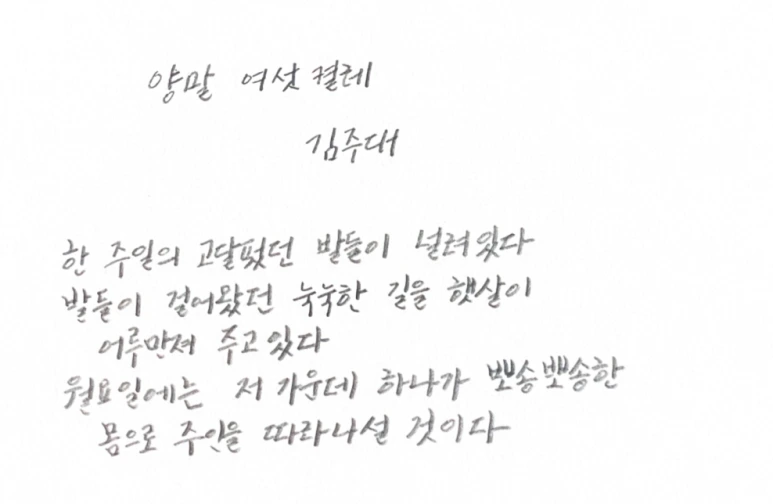 양말 여섯 켤레
김주대
한 주일의 고달펐던 발들이 널려있다
발들이 걸어왔던 눅눅한 길을 햇살이
어루만져 주고있다
월요일에는 저 가운데 하나가 뽀송뽀송한
몸으로 주인을 따라나설 것이다